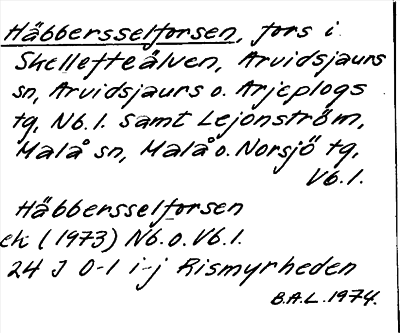 Häbbersselforsen, fors i
Skellefteälven, Arvidsjaurs
sn, Arvidsjaurs o. Arjeplogs
tg, Nb.l. samt Lejonström,
Malå sn, Malå o. Norsjö tg,
Vb.l.
Häbbersselforsen
ek (1973) Nb.o.Vb.l.
24 J 0-1 i-j Rismyrheden
B.A.L. 1974.